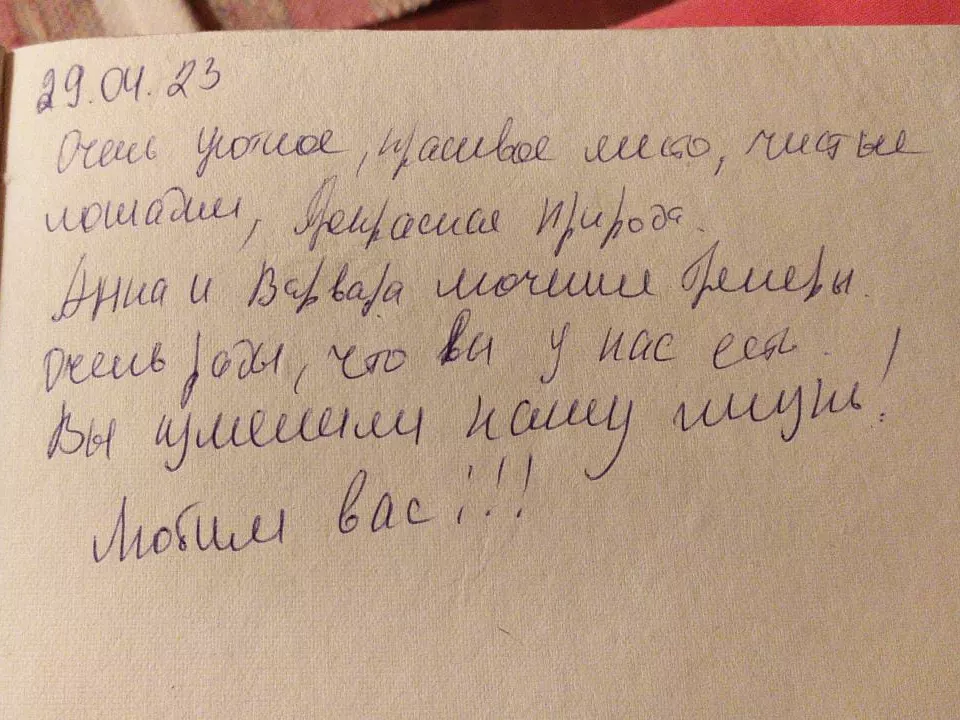 29.04.23
Очень уютное, красивое место, чистые
лошади, Прекрасная природа.
Анна и Варвара лючшие Тренеры.
Очень рады, что Вы у нас есть.
Вы изменили нашу жизнь!
Любим вас!!!